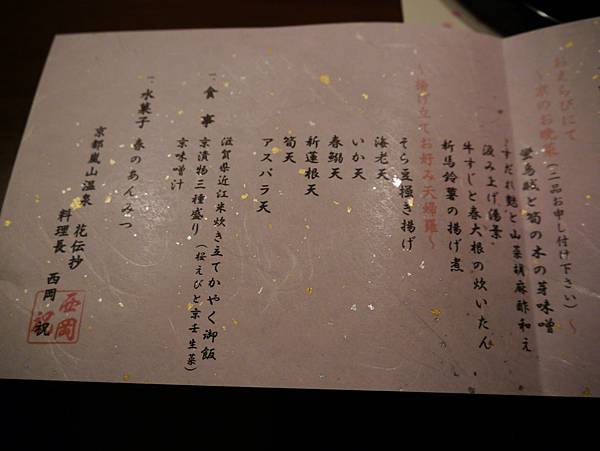 おえらびにて
～京のお晩菜(二品お申し付け下さい)～
蛍烏賊と筍の木の芽味噌
すだれ麩と山菜胡麻酢和え
汲み上げ湯葉
牛すじと春大根の炊いたん
新馬鈴薯の揚げ煮
～揚げ立てお好み天婦羅～
そら豆掻き揚げ
海老天
いか天
春鰯天
新蓮根天
筍天
アスパラ天
一、食事
滋賀県近江米炊き立てかやく御飯
(桜えびと京壬生菜)
京漬物三種盛り
京味噌汁
一、水菓子 春のあんみつ
京都嵐山温泉 花伝抄
料理長 西岡 祝
西岡
祝